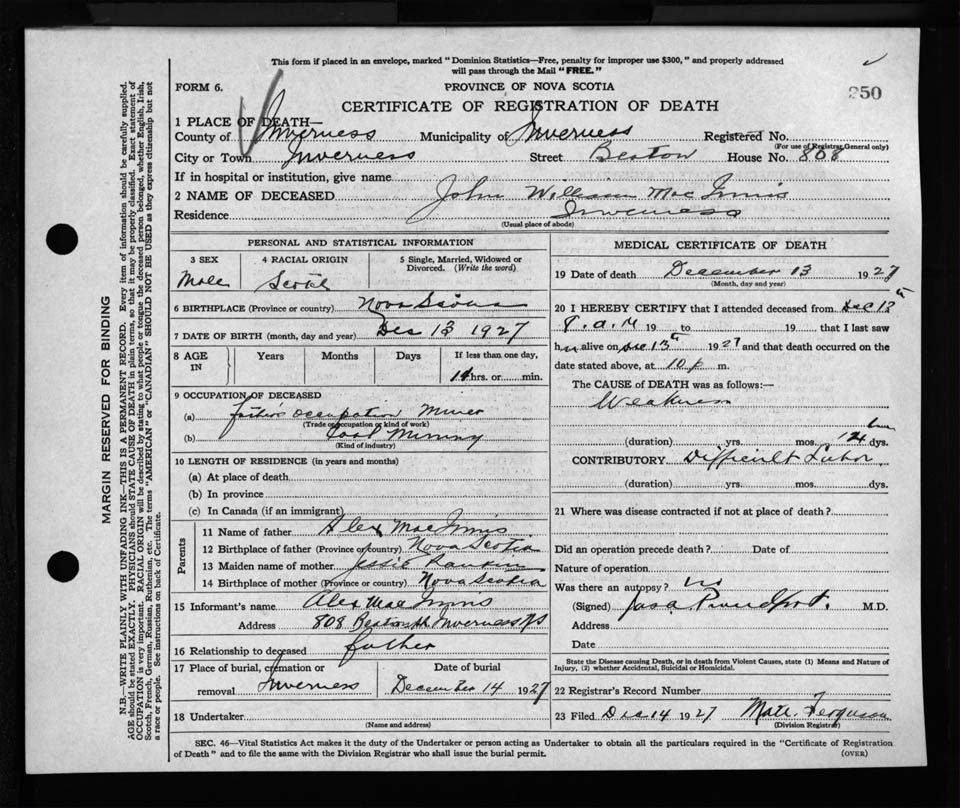 This form if placed in an envelope, marked "Dominion Statistics—Free, penalty for improper use $300," and properly addressed
will pass through the Mail "FREE."
FORM 6.
PROVINCE OF NOVA SCOTIA
250
CERTIFICATE OF REGISTRATION OF DEATH
1 PLACE OF DEATH—
County of Inverness Municipality of Inverness Registered No.
(For use of Registrar General only)
City or Town Inverness Street Beaton House No. 808
If in hospital or institution, give name
2 NAME OF DECEASED John William Mac Innis
Residence Inverness
(Usual place of abode)
PERSONAL AND STATISTICAL INFORMATION
3 SEX 4 RACIAL ORIGIN 5 Single, Married, Widowed or
Divorced. (Write the word)
Male Scotch
6 BIRTHPLACE (Province or country) Nova Scotia
7 DATE OF BIRTH (month, day and year) Dec 13 1927
8 AGE IN Years Months Days If less than one day,
14 hrs. or min.
9 OCCUPATION OF DECEASED
(a) father's occupation Miner
(Trade occupation or kind of work)
(b) Coal Mining
(Kind of industry)
10 LENGTH OF RESIDENCE (in years and months)
(a) At place of death
(b) In province
(c) In Canada (if an immigrant)
Parents
11 Name of father Alex Mac Innis
12 Birthplace of father (Province or country) Nova Scotia
13 Maiden name of mother Jessie Rankin
14 Birthplace of mother (Province or country) Nova Scotia
15 Informant's name Alex Mac Innis
Address 808 Beaton St Inverness NS
16 Relationship to deceased father
17 Place of burial, cremation or Date of burial
removal Inverness December 14 1927
18 Undertaker
(Name and address)
MEDICAL CERTIFICATE OF DEATH
19 Date of death December 13 1927
(Month, day and year)
20 I HEREBY CERTIFY that I attended deceased from Dec 13th
8 a.m 19 to 19 , that I last saw
him alive on Dec 13th 1927 and that death occurred on the
date stated above, at 10 p m.
The CAUSE of DEATH was as follows:—
Weakness
(duration) yrs. mos. 14 dys.
CONTRIBUTORY Difficult Labor
(duration) yrs. mos. dys.
21 Where was disease contracted if not at place of death?
Did an operation precede death? Date of
Nature of operation
Was there an autopsy? no
(Signed) M.D.
Address
Date
State the Disease causing Death, or in death from Violent Causes, state (1) Means and Nature of
Injury, (2) whether Accidental, Suicidal or Homicidal.
22 Registrar's Record Number
23 Filed Dec 14 1927 Ferguson
(Division Registrar)
SEC. 46—Vital Statistics Act makes it the duty of the Undertaker or person acting as Undertaker to obtain all the particulars required in the "Certificate of Registration
of Death" and to file the same with the Division Registrar who shall issue the burial permit.
(OVER)
MARGIN RESERVED FOR BINDING
N.B.—WRITE PLAINLY WITH UNFADING INK—THIS IS A PERMANENT RECORD. Every item of information should be carefully supplied.
AGE should be stated EXACTLY. PHYSICIANS should STATE CAUSE OF DEATH in plain terms, so that it may be properly classified. Exact statement of
OCCUPATION is very important. RACIAL ORIGIN will be described by stating to what people or tongue the deceased person belonged, whether English, Irish,
Scotch, French, German, Russian, Ruthenian, etc. The terms "AMERICAN" or "CANADIAN" SHOULD NOT BE USED as they express citizenship but not
a race or people. See instructions on back of Certificate.